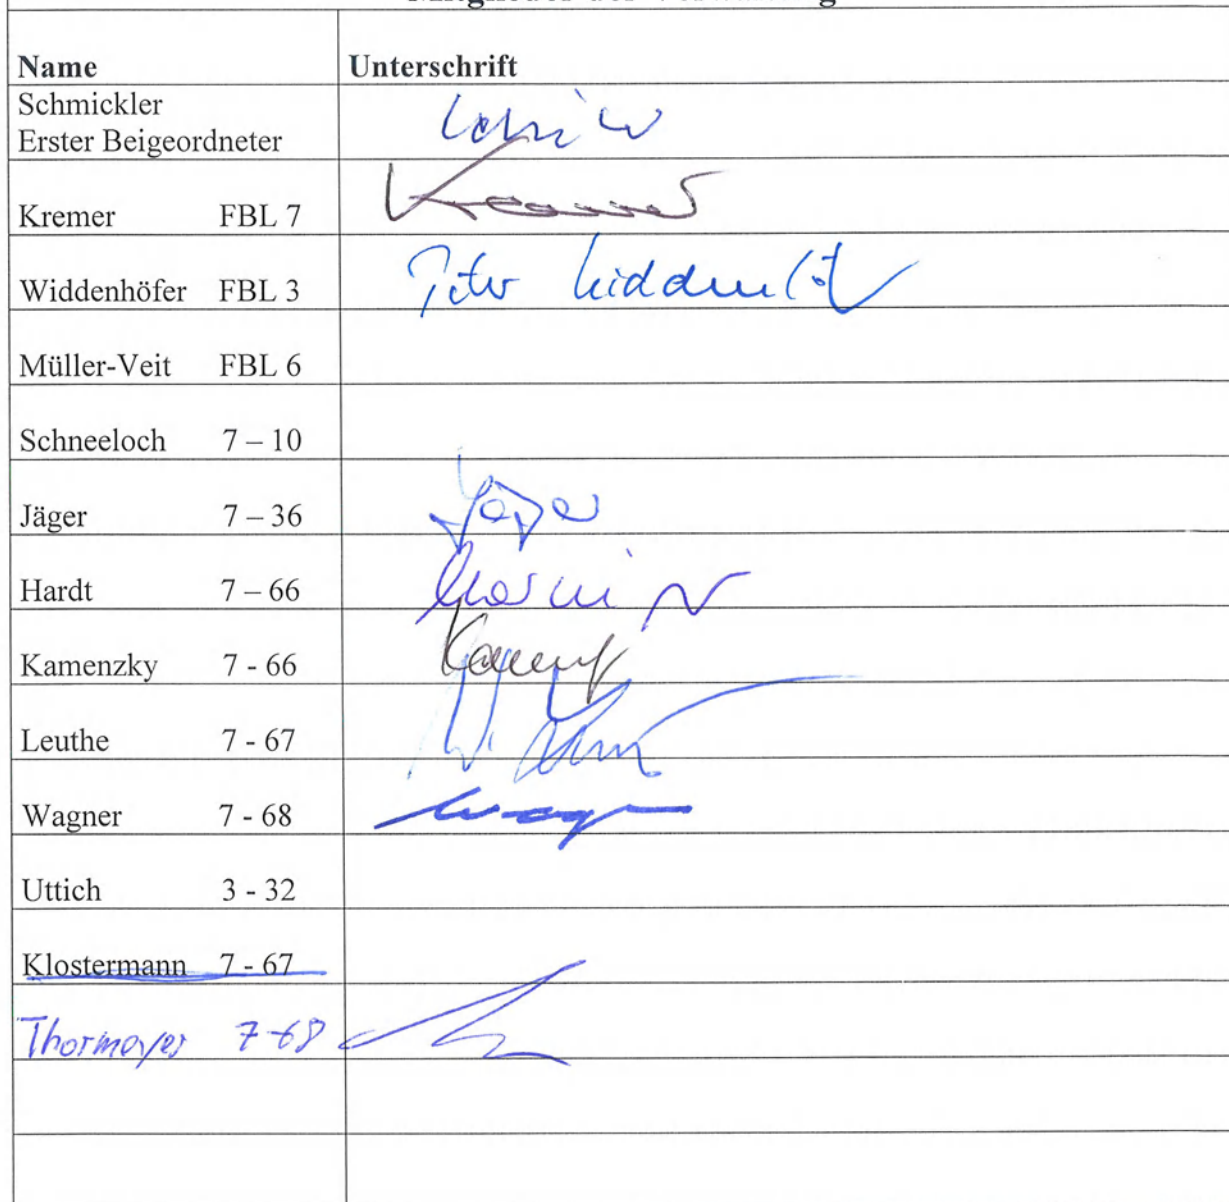 Name Unterschrift
Schmickler
Erster Beigeordneter
Kremer FBL 7
Widdenhöfer FBL 3 Peter
Müller-Veit FBL 6
Schneeloch 7 – 10
Jäger 7 – 36 Jäger
Hardt 7 – 66
Kamenzky 7 - 66
Leuthe 7 - 67
Wagner 7 - 68
Uttich 3 - 32
Klostermann 7 - 67
Thormayer 7-68